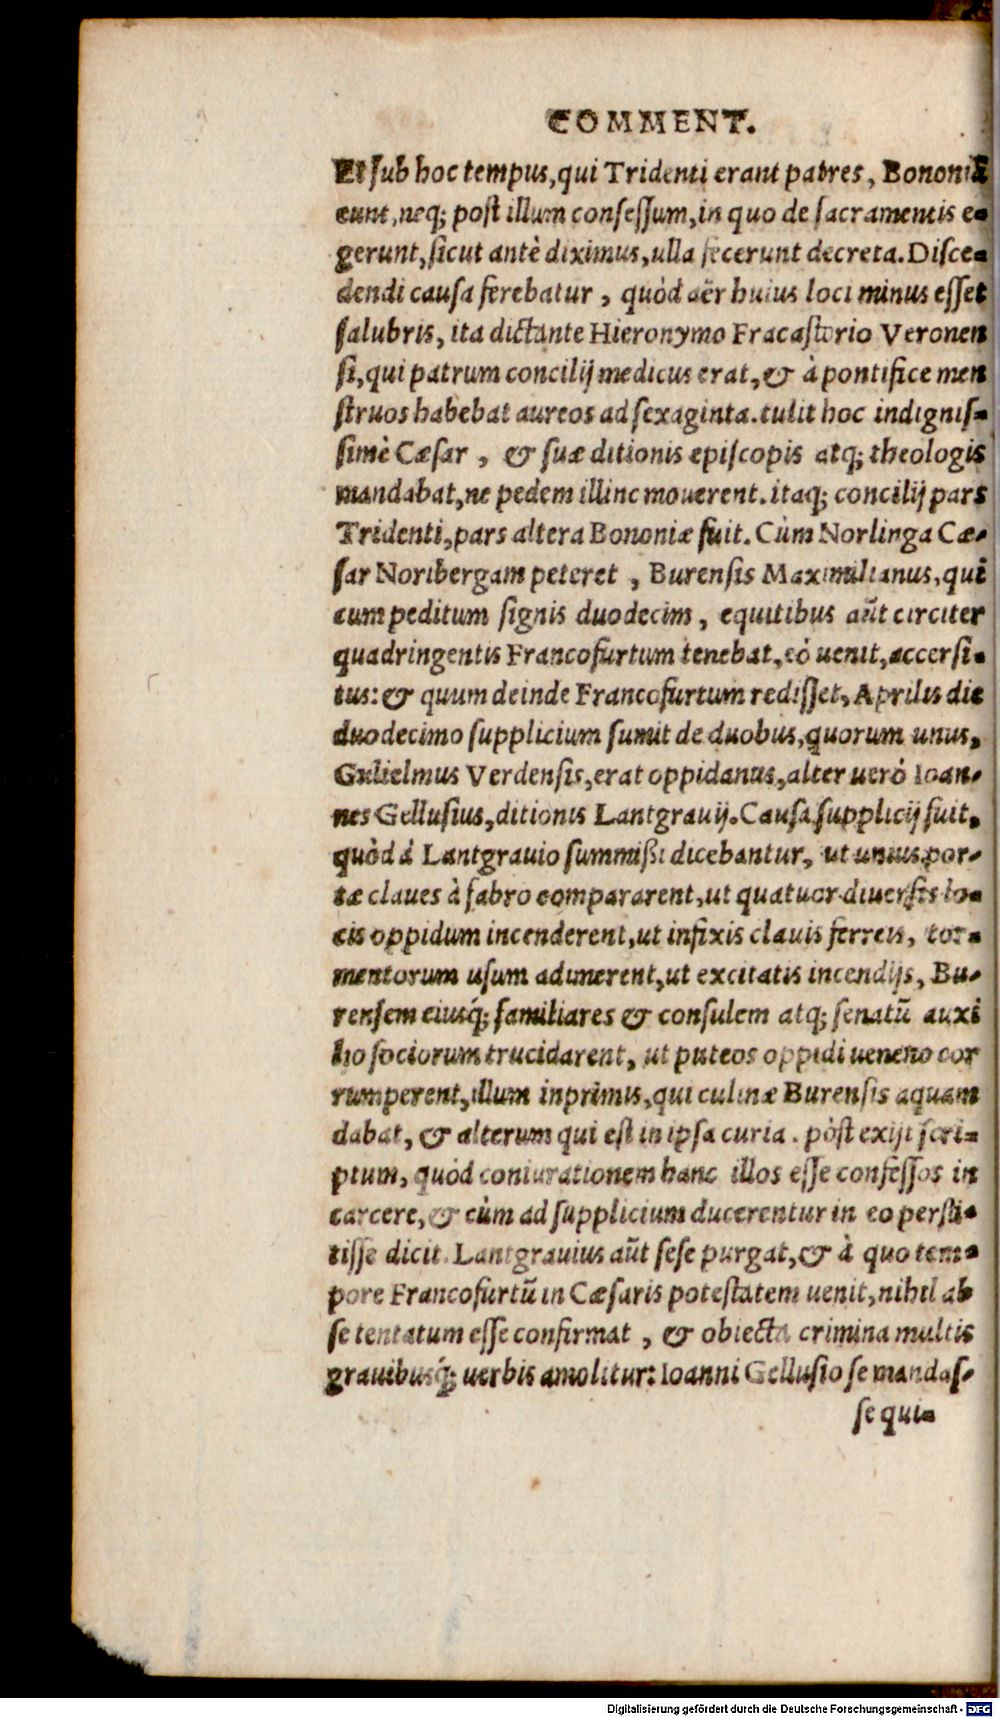 COMMENT.
Et ſub hoc tempus, qui Tridenti erant patres, Bononiã
eunt, neq; poſt illum conſeſſum, in quo de ſacramentis e-
gerunt, ſicut antè diximus, ulla fecerunt decreta. Diſce-
dendi cauſa ferebatur, quòd aër huius loci minus eſſet
ſalubris, ita dictante Hieronymo Fracaſtorio Veronen
ſi, qui patrum concilij medicus erat, & à pontifice men
ſtruos habebat aureos ad ſexaginta. tulit hoc indigniſ-
ſimè Cæſar, & ſuæ ditionis epiſcopis atq; theologis
mandabat, ne pedem illinc mouerent. itaq; concilij pars
Tridenti, pars altera Bononiæ fuit. Cùm Norlinga Cæ-
ſar Noribergam peteret, Burenſis Maximilianus, qui
cum peditum ſignis duodecim, equitibus aūt circiter
quadringentis Francofurtum tenebat, eò uenit, accerſi-
tus: & quum deinde Francofurtum rediſſet, Aprilis die
duodecimo ſupplicium ſumit de duobus, quorum unus,
Gulielmus Verdenſis, erat oppidanus, alter uerò Ioan-
nes Gelluſius, ditionis Lantgrauij. Cauſa ſupplicij fuit,
quòd à Lantgrauio ſummiſsi dicebantur, ut unius por-
tæ claues à fabro compararent, ut quatuor diuerſis lo-
cis oppidum incenderent, ut infixis clauis ferreis, tor-
mentorum uſum adimerent, ut excitatis incendijs, Bu-
renſem eiusq́; familiares & conſulem atq; ſenatū auxi
lio ſociorum trucidarent, ut puteos oppidi ueneno cor
rumperent, illum inprimis, qui culinæ Burenſis aquam
dabat, & alterum qui eſt in ipſa curia. pòſt exijt ſcri-
ptum, quòd coniurationem hanc illos eſſe confeſſos in
carcere, & cùm ad ſupplicium ducerentur in eo perſti-
tiſſe dicit. Lantgrauius aūt ſeſe purgat, & à quo tem-
pore Francofurtū in Cæſaris poteſtatem uenit, nihil ab
ſe tentatum eſſe confirmat, & obiecta crimina multis
grauibusq́; uerbis amolitur: Ioanni Gelluſio ſe mandaſ-
ſe qui-
Digitalisierung gefördert durch die Deutsche Forschungsgemeinschaft - DFG